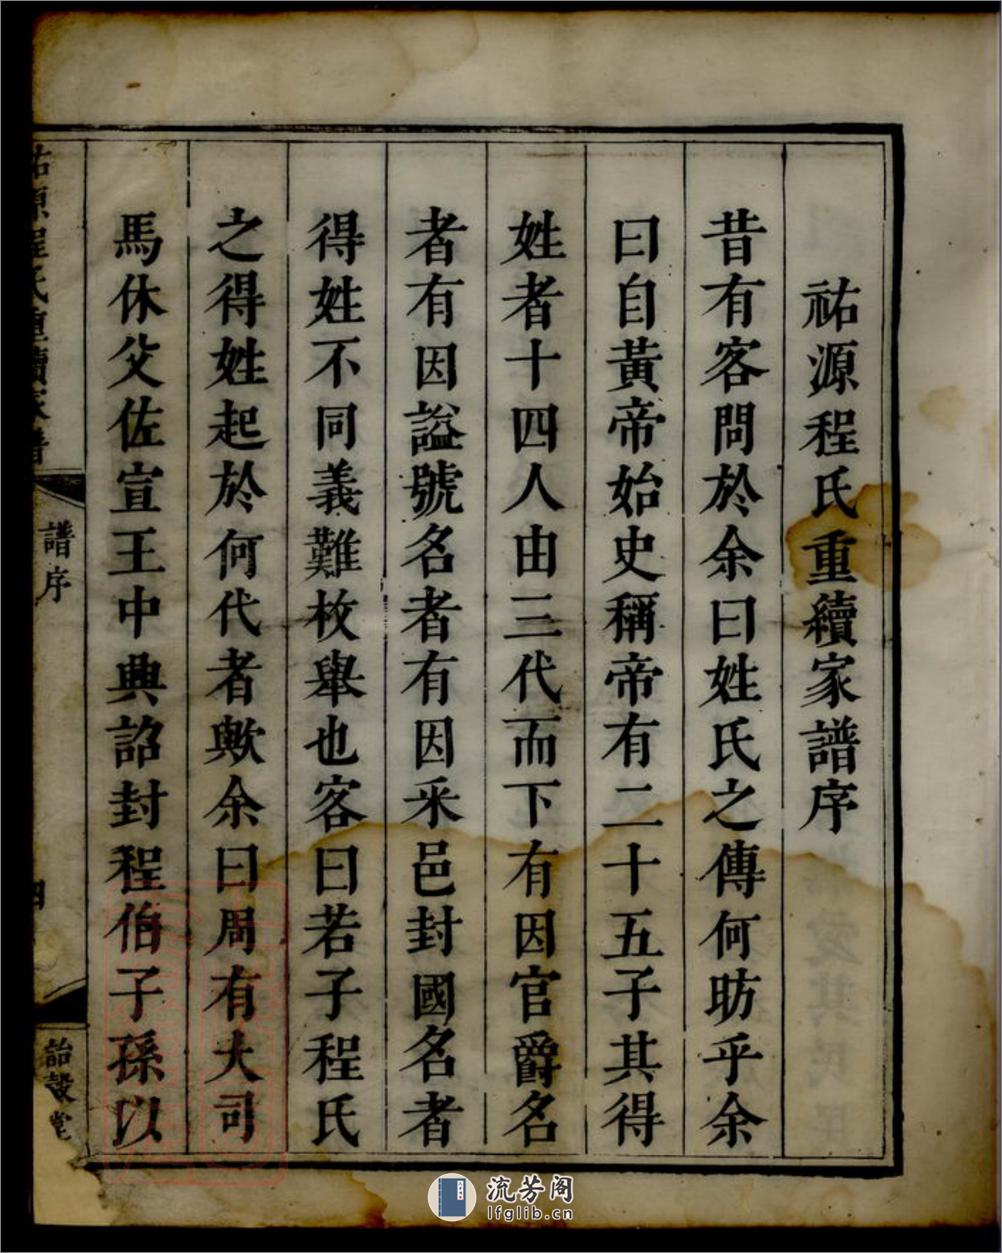 祐源程氏重續家譜序
昔有客問於余曰姓氏之傳何昉乎余
曰自黃帝始史稱帝有二十五子其得
姓者十四人由三代而下有因官爵名
者有因謚號名者有因采邑封國名者
得姓不同義難枚舉也客曰若子程氏
之得姓起於何代者歟余曰周有大司
馬休父佐宣王中興詔封程伯子孫以
祐源程氏重續家譜
譜序
詒穀堂
流芳阁
lfglib.cn